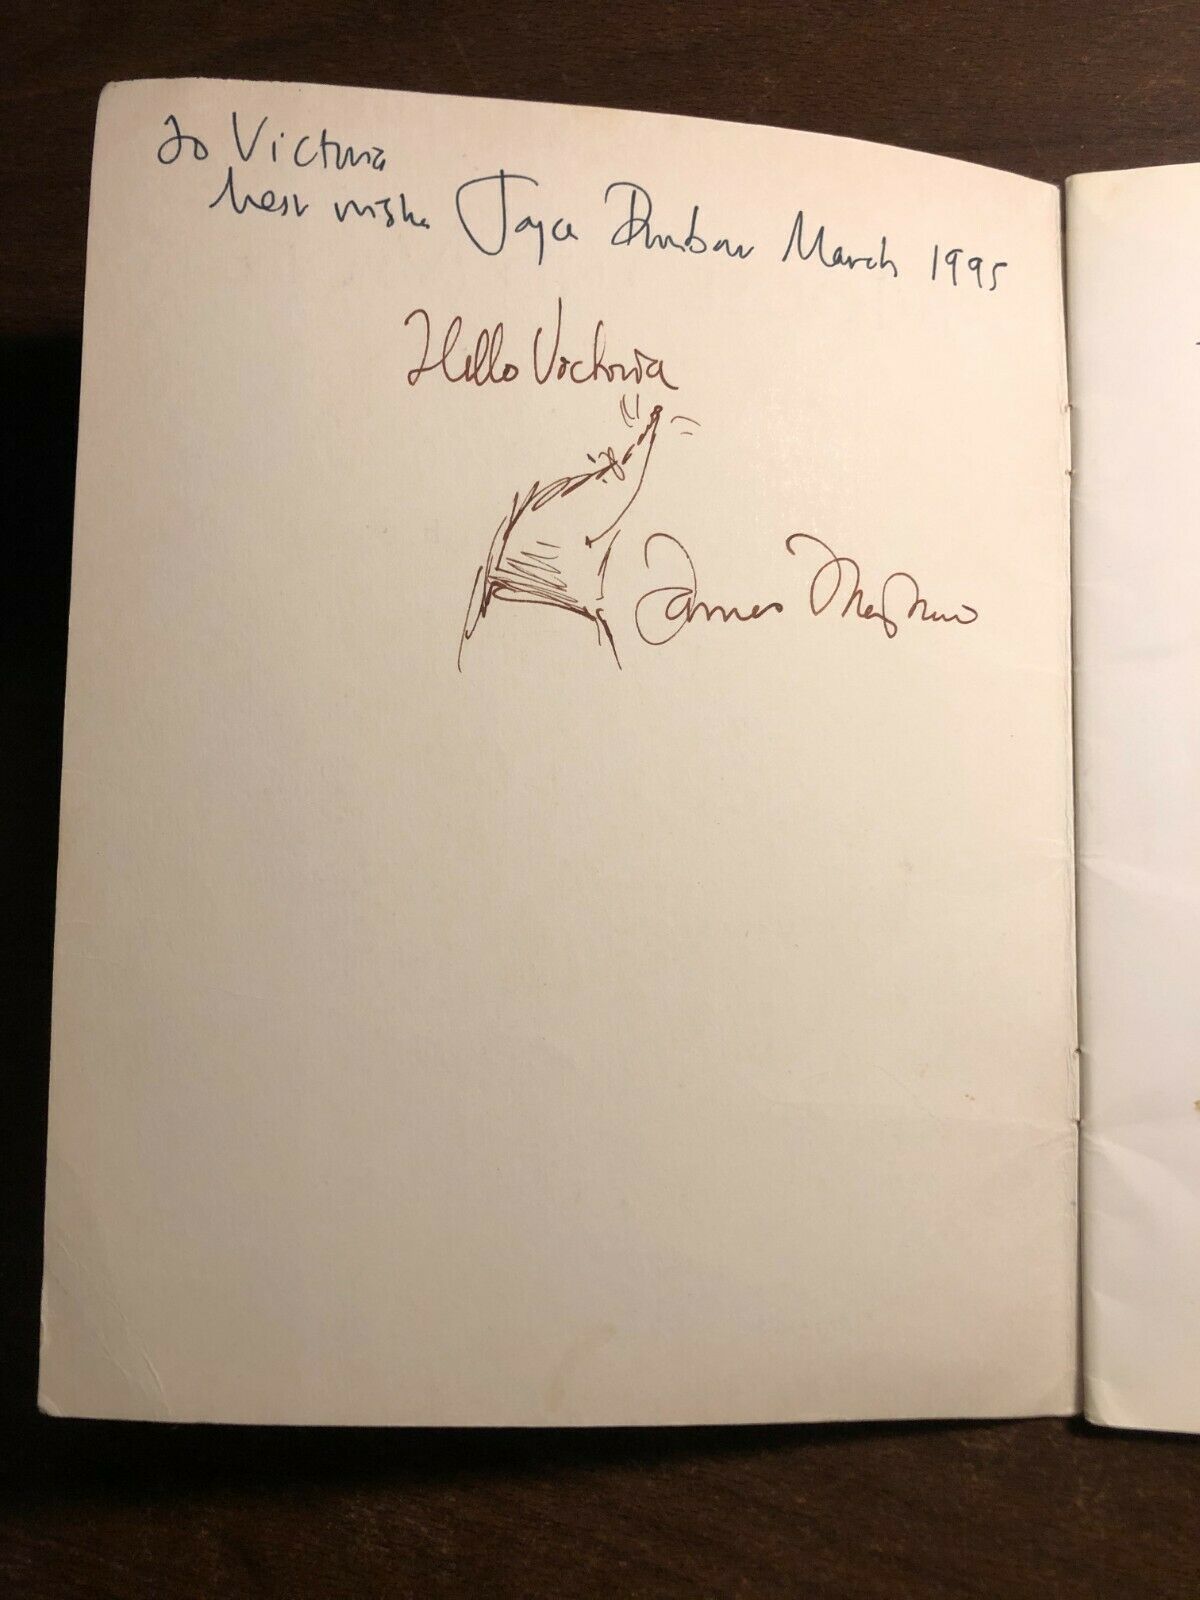 To Victoria
best wishes Joyce Dunbar March 1995
Hello Victoria
James Mayhew